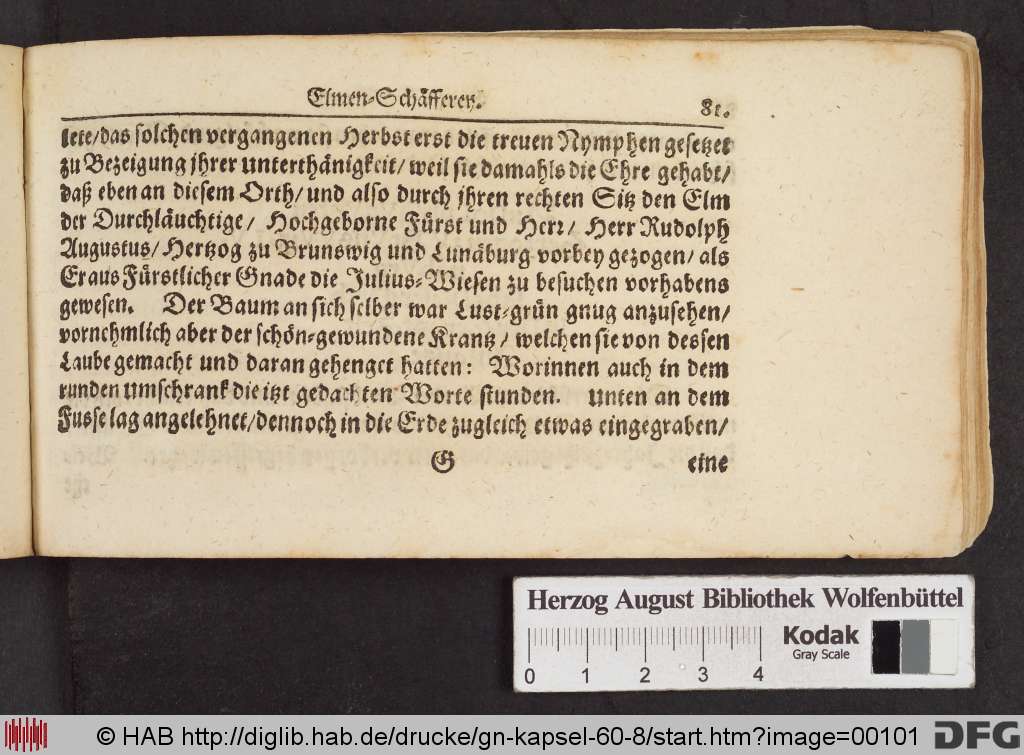 Elmen-Schäfferey. 81.
lete/das solchen vergangenen Herbst erst die treuen Nymphen gesetzet
zu Bezeigung jhrer unterthänigkeit/ weil sie damahls die Ehre gehabt/
daß eben an diesem Orth/ und also durch jhren rechten Sitz den Elm
der Durchläuchtige/ Hochgeborne Fürst und Herr/ Herr Rudolph
Augustus/ Hertzog zu Brunswig und Lunäburg vorbey gezogen/ als
Er aus Fürstlicher Gnade die Julius-Wiesen zu besuchen vorhabens
gewesen. Der Baum an sich selber war Lust-grün gnug anzusehen/
vornehmlich aber der schön-gewundene Krantz/ welchen sie von dessen
Laube gemacht und daran gehenget hatten: Worinnen auch in dem
runden umschrank die itzt gedachten Worte stunden. unten an dem
Fusse lag angelehnet/dennoch in die Erde zugleich etwas eingegraben/
G eine
Herzog August Bibliothek Wolfenbüttel
Kodak
Gray Scale
0 1 2 3 4
© HAB http://diglib.hab.de/drucke/gn-kapsel-60-8/start.htm?image=00101
DFG